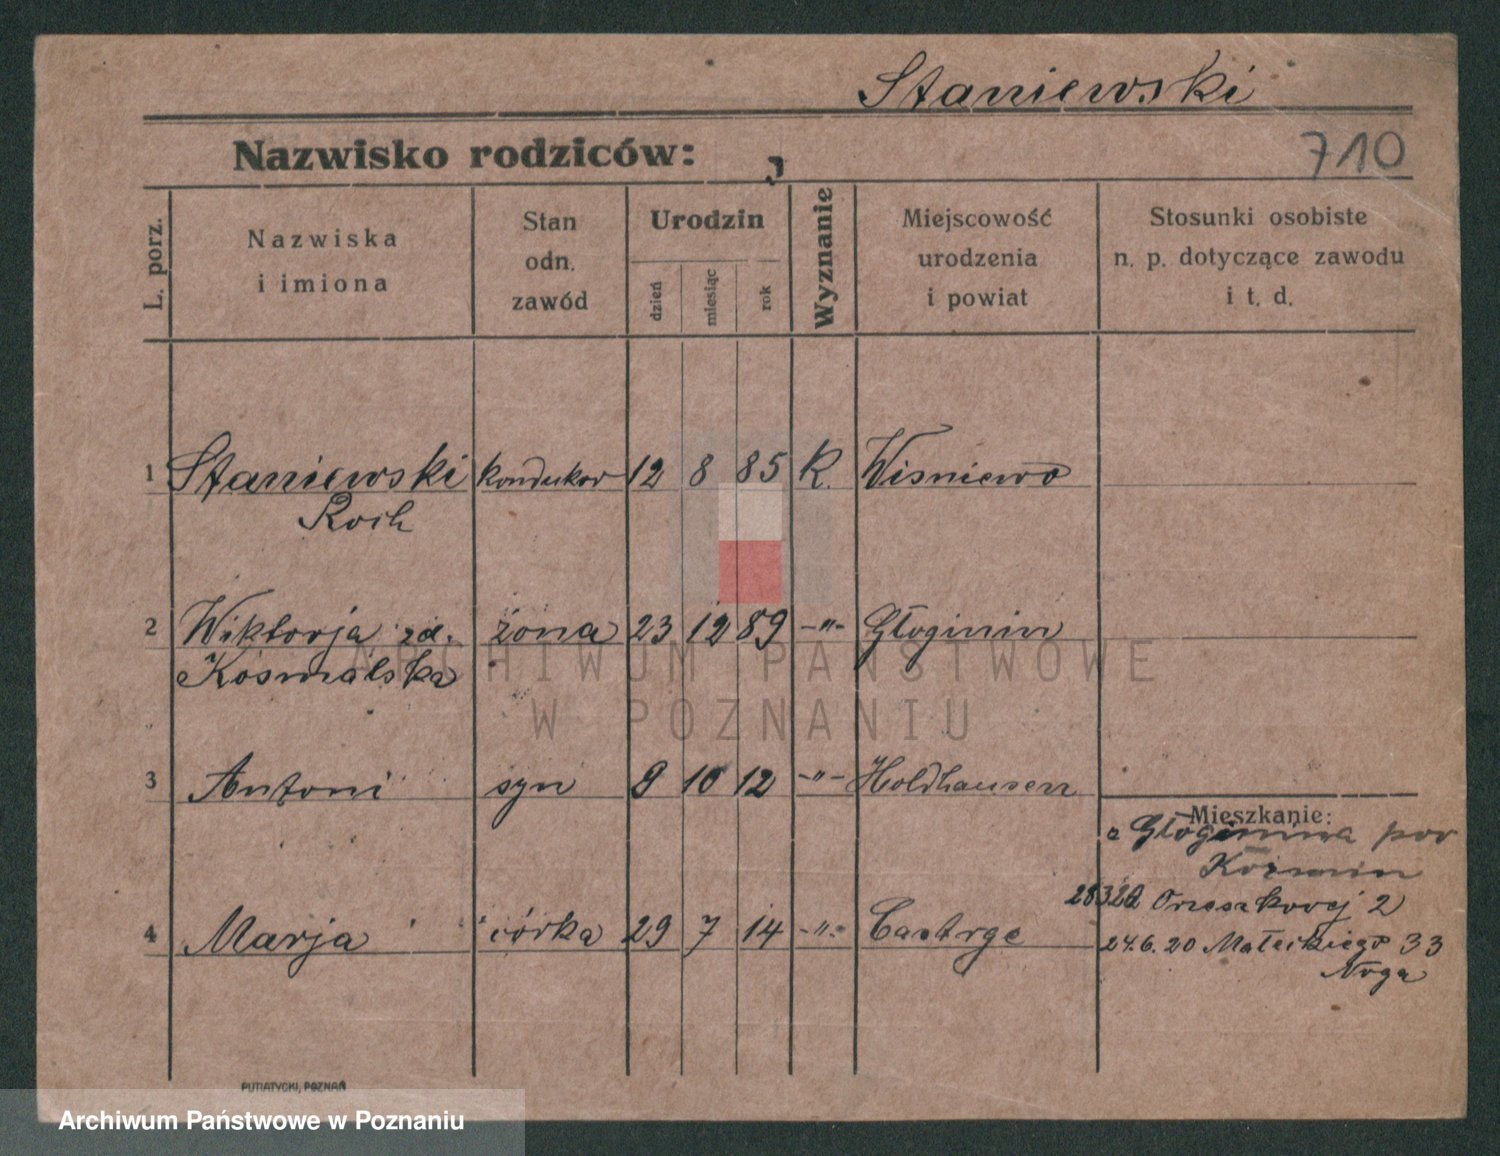 Staniewski
Nazwisko rodziców:
710
L. porz.
Nazwiska
i imiona
Stan
odn.
zawód
Urodzin
dzień
miesiąc
rok
Wyznanie
Miejscowość
urodzenia
i powiat
Stosunki osobiste
n. p. dotyczące zawodu
i t. d.
1 Staniewski kondukor 12 8 85 K. Wisniewo
Roch
2 Wiktorja zd. żona 23 12 89 -"- Głoginin
Kosmalska
3 Antoni syn 8 10 12 -"- Holdhausen
Mieszkanie:
z Głoginina pow
Kozmin
Orzeszkowej 2
4 Marja córka 29 7 14 -"- Castrge
24.6.20 Małeckiego 33
Noga
ARCHIWUM PAŃSTWOWE
W POZNANIU
PUTIATYCKI, POZNAŃ
Archiwum Państwowe w Poznaniu